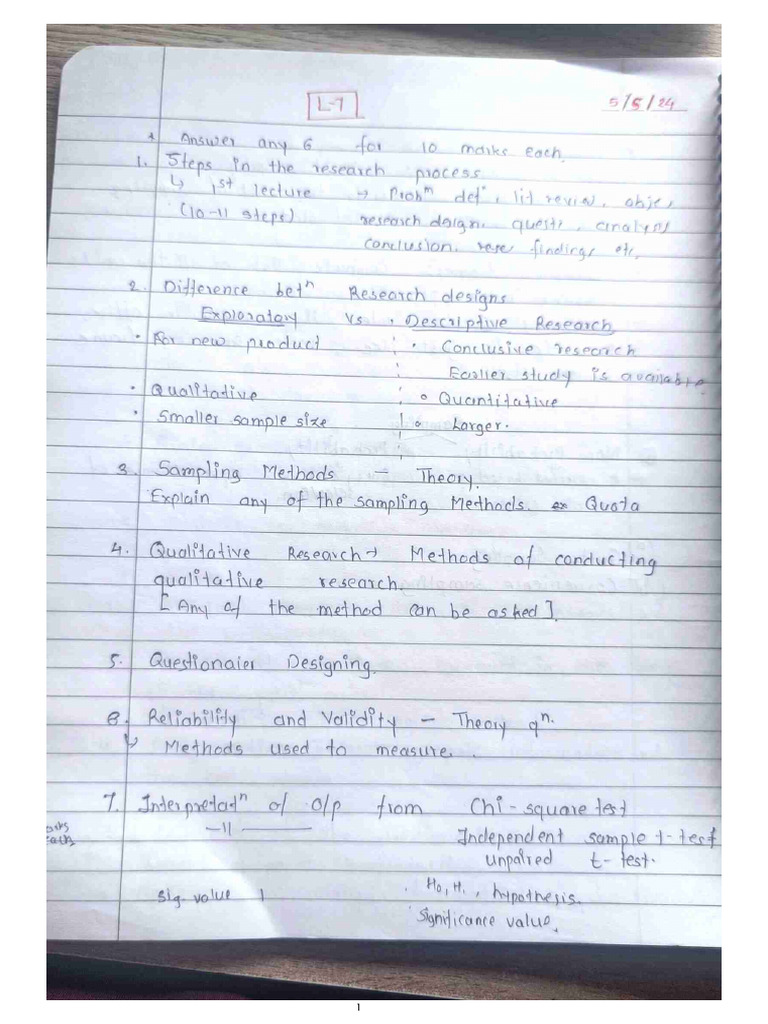 L-7
5/5/24
* Answer any 6 for 10 marks each.
1. Steps in the research process
↳ 1st lecture → Probm defn, lit review, obje,
(10-11 steps) research design, questr, analysis
conclusion, findings etc.
2. Difference betn Research designs
Exploratory vs. Descriptive Research
• For new product • Conclusive research
Earlier study is available.
• Qualitative • Quantitative
• Smaller sample size • Larger.
3. Sampling Methods - Theory.
Explain any of the Sampling Methods. ex Quota
4. Qualitative Research → Methods of conducting
qualitative research.
[Any of the method can be asked].
5. Questionaier Designing.
6. Reliability and Validity - Theory qn.
↳ Methods used to measure.
7. Interpretatn of O/p from Chi-square test
—11— Independent sample t-test
unpaired t-test.
Sig. value • H0, H1, hypothesis.
• Significance value.
1